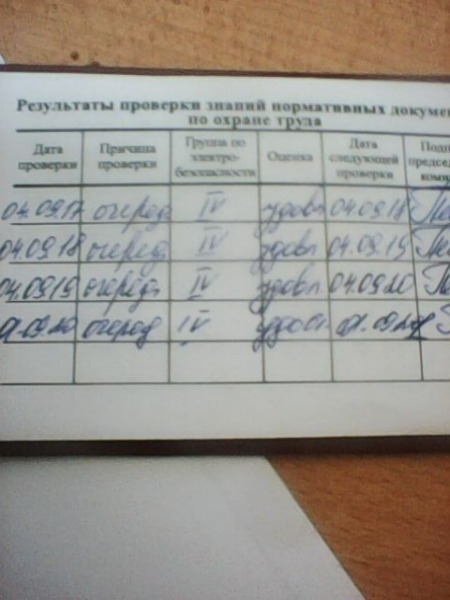 Результаты проверки знаний нормативных докумен
по охране труда
Дата проверки Причина проверки Группа по электро-безопасности Оценка Дата следующей проверки Подп председ коми
04.09.17 очеред IV удовл 04.09.18
04.09.18 очеред IV удовл 04.09.19
04.09.19 очеред IV удовл 04.09.20
.09.20 очеред IV удов